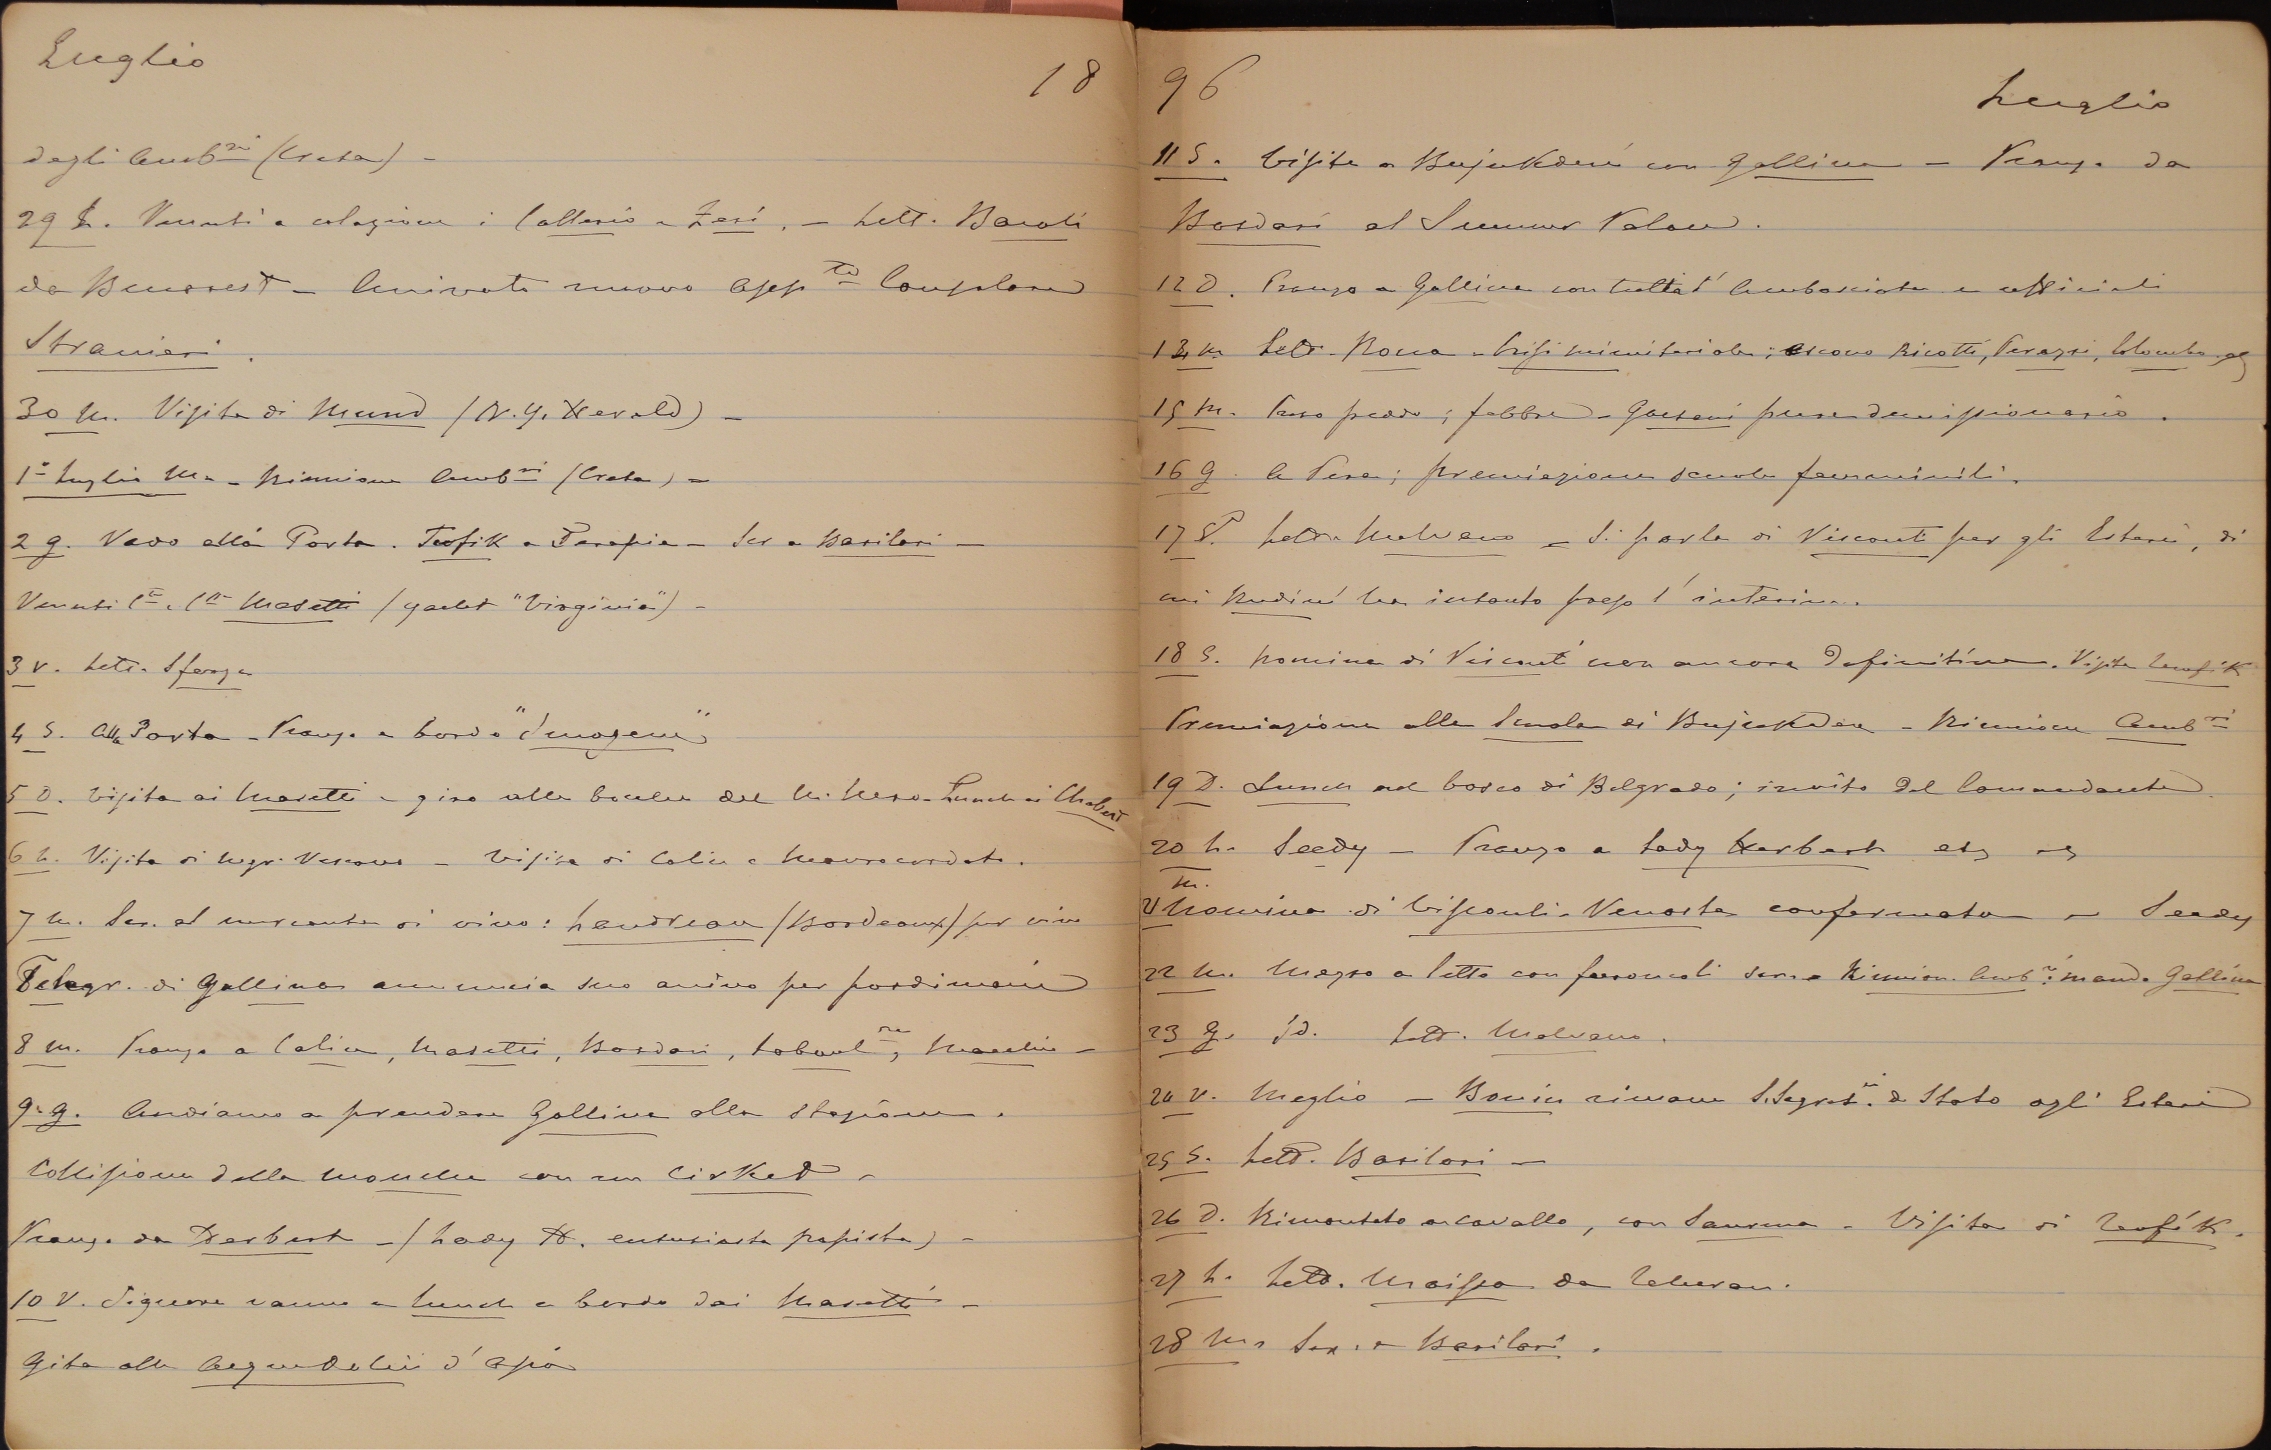 Luglio
18
degli Amb.ri (Creta) -
29 L. Venuti a colazione i Callerio e Zesi. - Lett. Baroli
da Bucarest - Arrivate nuovo app.to Consolare
Stranieri.
30 M. Visita di Mund (N.Y. Herald) -
1° Luglio M. - Riunione Amb.ri (Creta) -
2 G. Vado alla Porta. Teofik a Terapia - Scr. a Basilari -
Venuti C.te e C.sa Masetti (yacht "Virginia") -
3 V. Lett. Sforza
4 S. Alla Porta - Pranzo a bordo "Imogene"
5 D. Visita ai Masetti - giro alle bouche del M. Nero - Lunch ai Chabert
6 L. Visita di Mgr. Vescovo - Visita di Calice e Maurocordato.
7 M. Scr. al mercante di vino: Landreau (Bordeaux) per vino
Telegr. di Gallina annuncia suo arrivo per posdimani
8 M. Pranzo a Calice, Masetti, Bosdari,
9 G. Andiamo a prendere Gallina alla stazione.
Collisione della mouche con un Cirket -
Pranzo da Herbert - (Lady H. entusiasta papista) -
10 V. Signore vanno a lunch a bordo dai Masetti -
Gita alle Acque Dolci d'Asia
96
Luglio
11 S. Visita a Bujukderé con Gallina - Pranzo da
Bosdari al Summer Palace.
12 D. Pranzo a Gallina con tutta l'Ambasciata e ufficiali
13 L. Lett. Roma - Crisi ministeriale; escono Ricotti, Perazzi, Colombo
15 M. Preso freddo; febbre - Gaetani pure dimissionario.
16 G. A Pera; premiazione scuole femminili.
17 V. Lett. Malvano - Si parla di Visconti per gli Esteri, di
cui Rudinì ha intanto preso l'interim.
18 S. Nomina di Visconti non ancora definitiva. Visita Teofik
Premiazione alla Scuola di Bujukdere - Riunione Amb.ri
19 D. Lunch nel bosco di Belgrado; invito del Comandante.
20 L. Seedy - Pranzo a Lady Herbert etc etc
21 M. Nomina di Visconti-Venosta confermata - Seedy
22 M. Mezzo a letto con foroncoli - Riunion. Amb.ri: mando Gallina
23 G. id. Lett. Malvano.
24 V. Meglio - Bonin rimane S. Segret.rio di Stato agli Esteri
25 S. Lett. Basilari -
26 D. Rimontato a cavallo, con Saurma - Visita di Teofik.
27 L. Lett. Maissa da Teheran.
28 M. Scr. a Basilari.